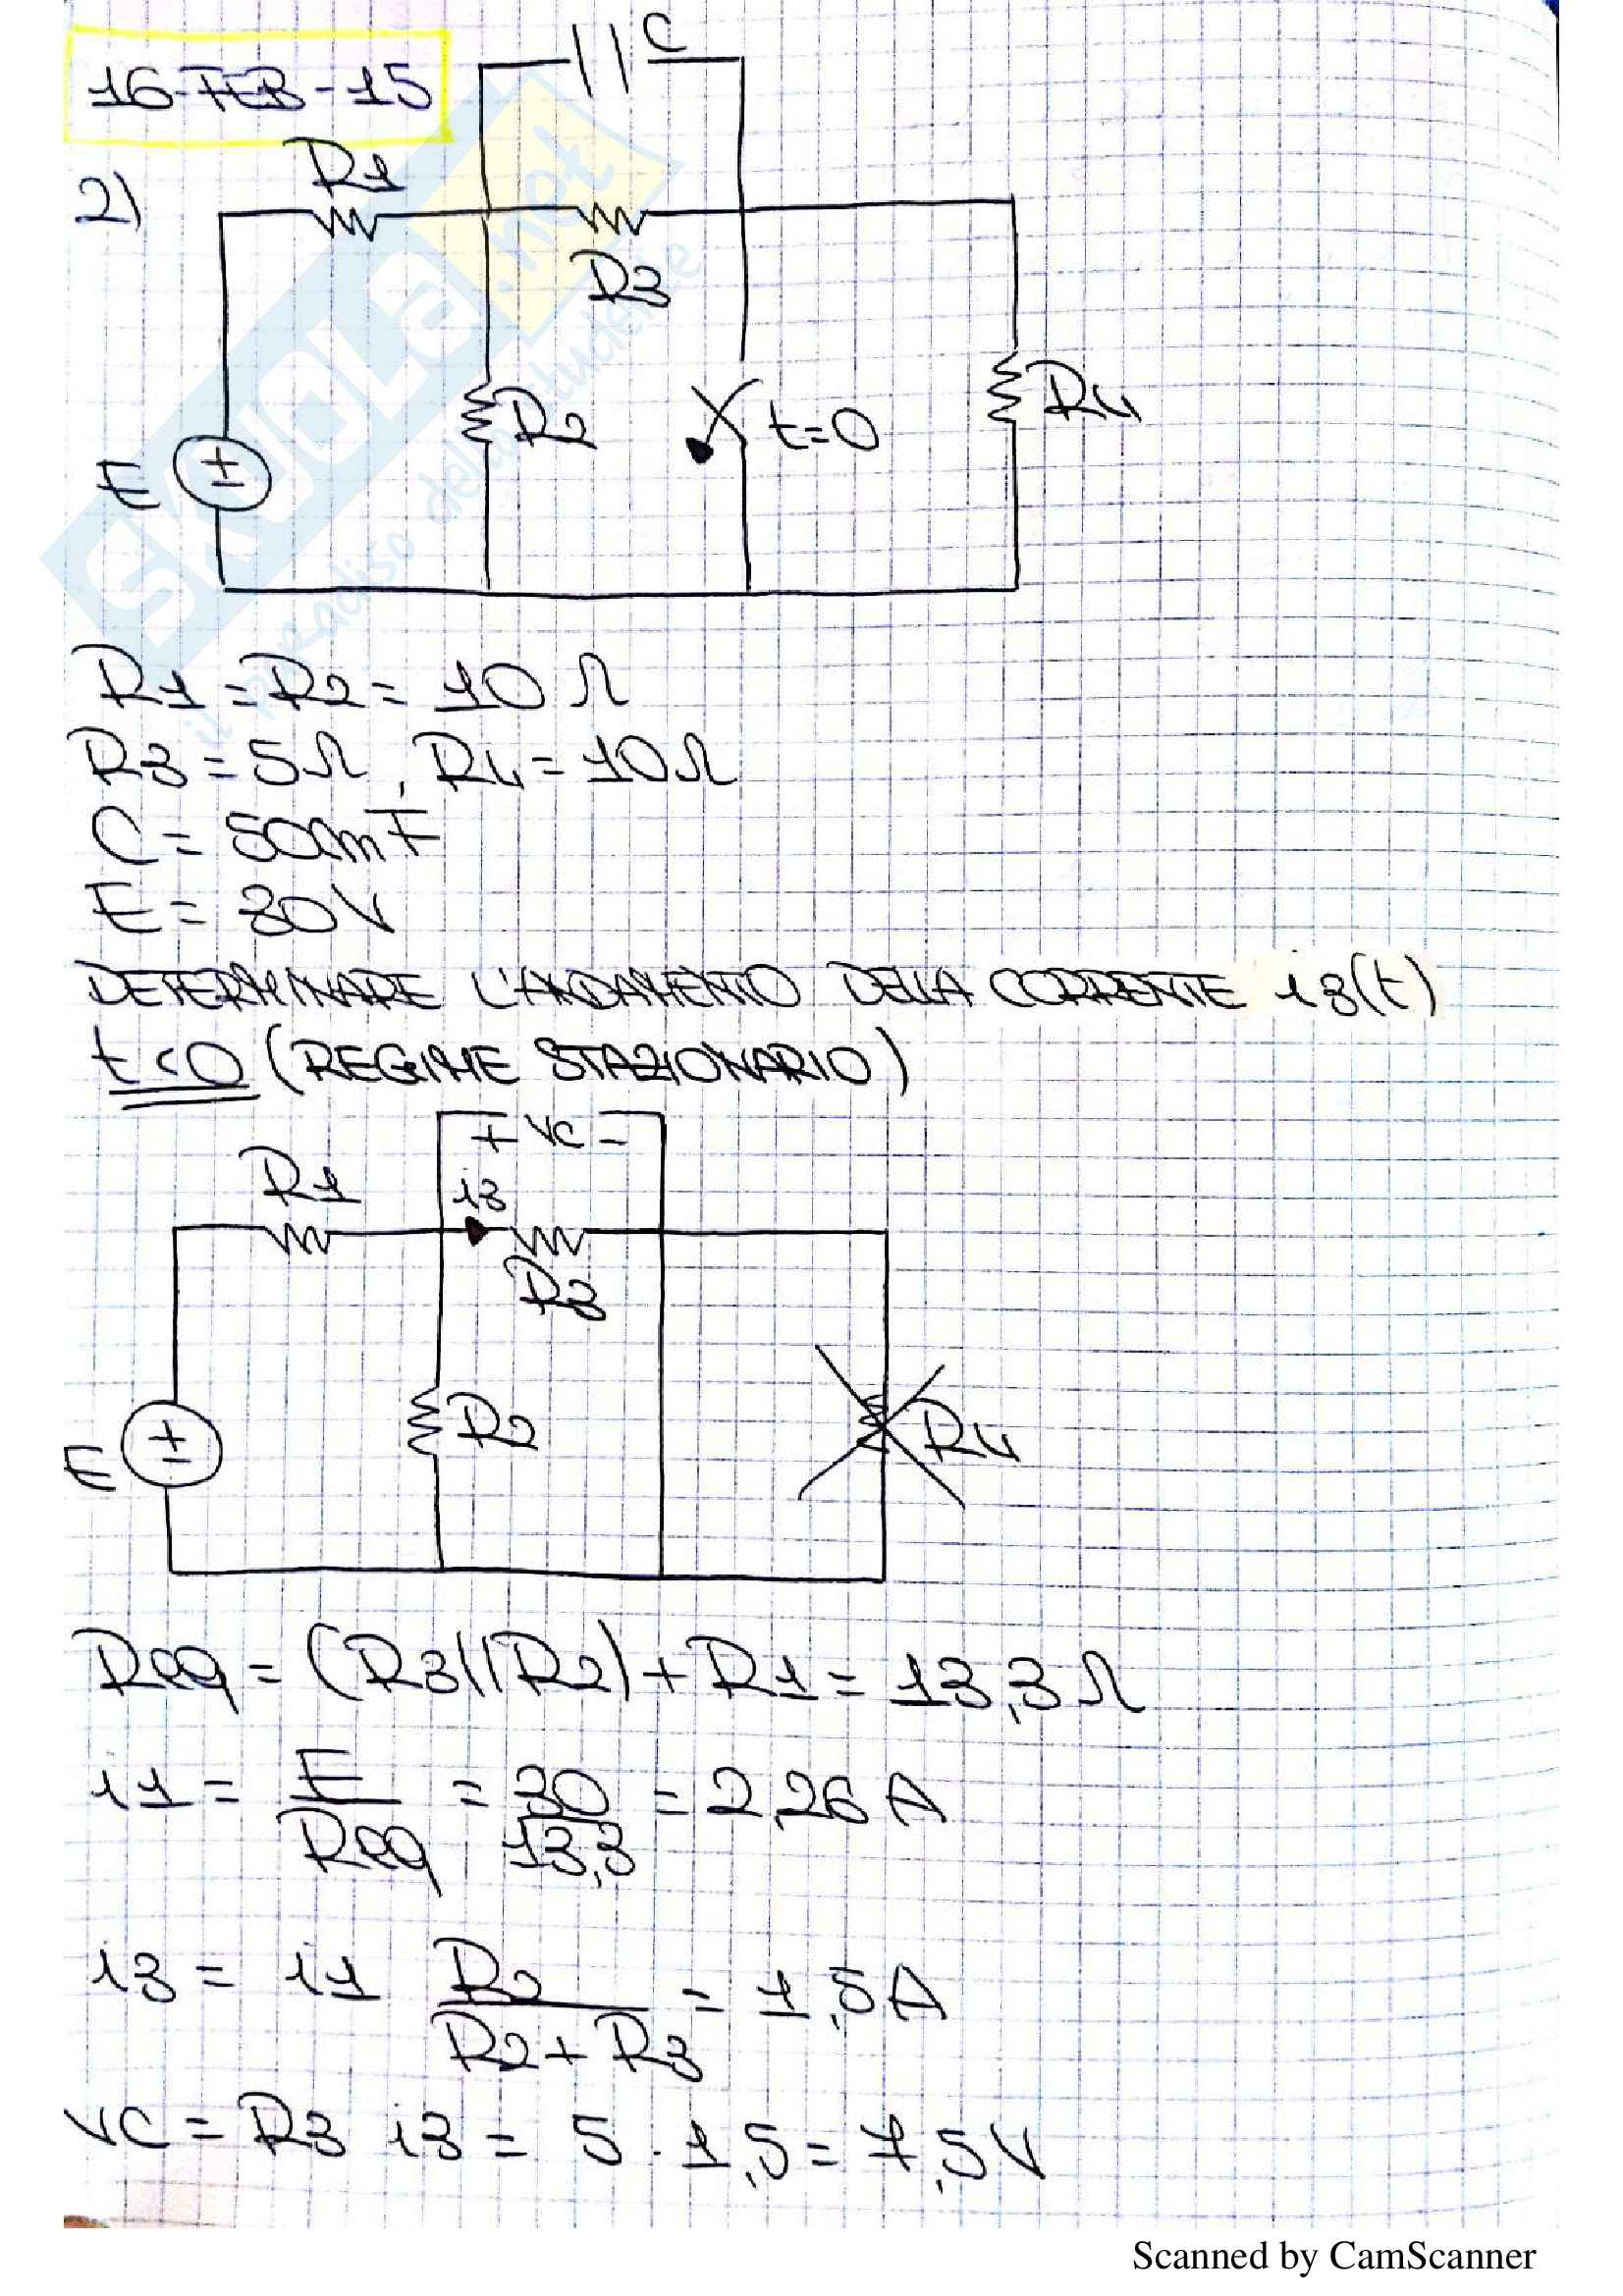 16-FEB-15
C
2)
R1
R3
R2
t=0
R4
E
±
R1 = R2 = 10 Ω
R3 = 5Ω, R4 = 10Ω
C = 500mF
E = 30V
DETERMINARE L'ANDAMENTO DELLA CORRENTE i3(t)
t<0 (REGIME STAZIONARIO)
+ vC -
R1
i3
R3
R2
R4
E
±
Req = (R3//R2) + R1 = 13,3 Ω
i1 = E/Req = 30/13,3 = 2,26 A
i3 = i1 R2/(R2+R3) = 1,5A
vC = R3 i3 = 5 · 1,5 = 7,5V
SKUOLA.net
il paradiso dello studente
Scanned by CamScanner